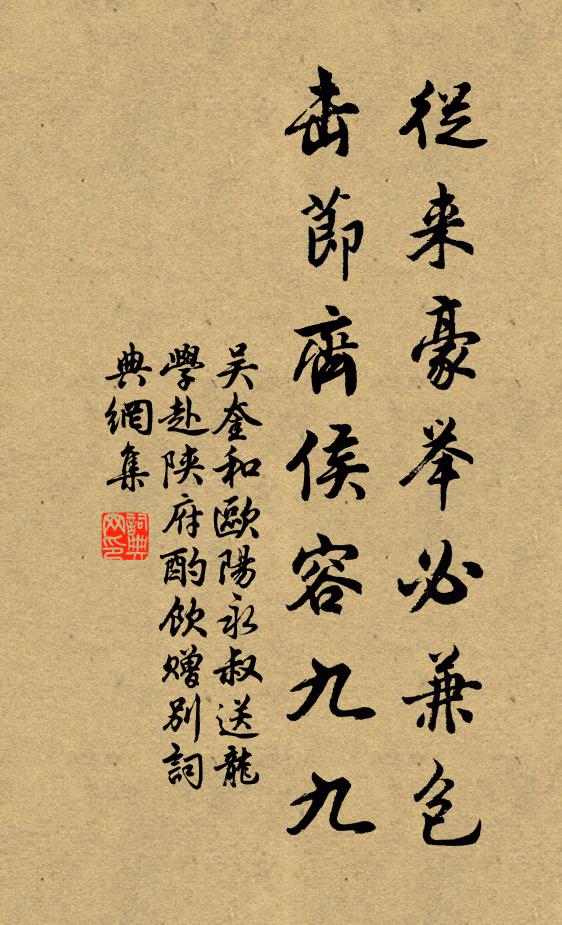 從来豪举必兼包
击節齊侯容九九
吴奎和歐陽永叔送龍
學赴陝府酌飲贈别詞
典網集
詞典
网印